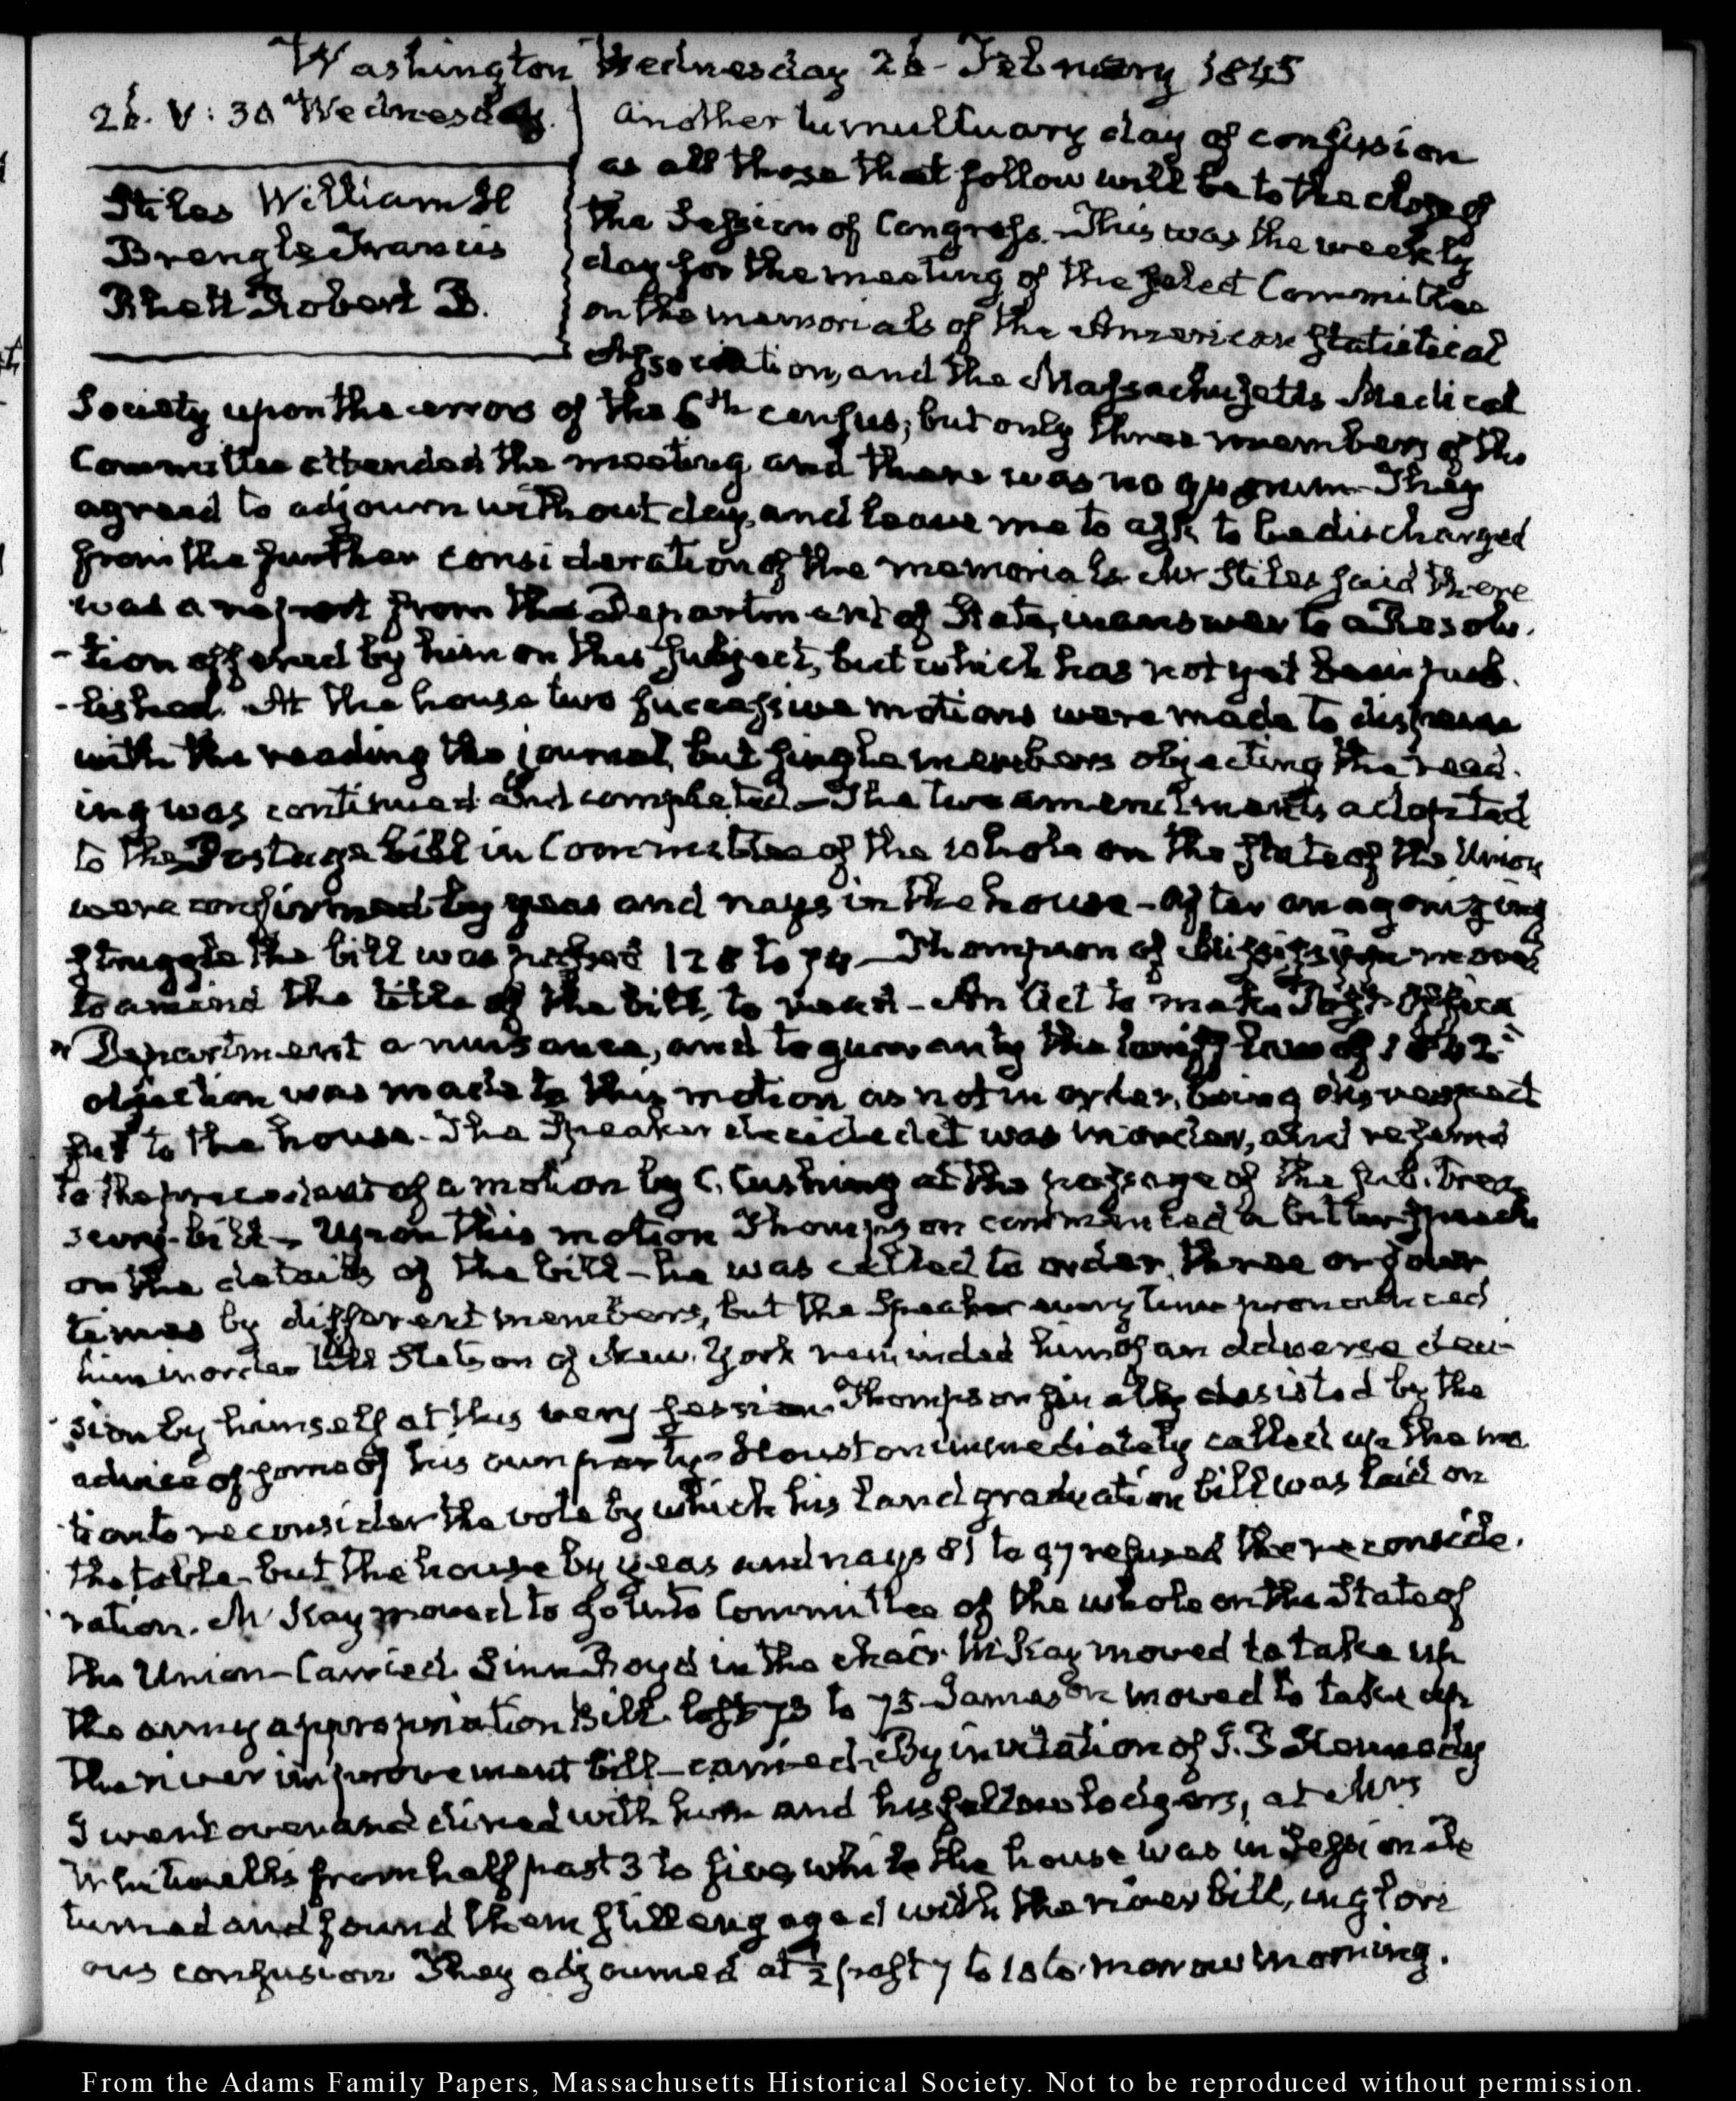 Washington Wednesday 26 - February 1845
26. V: 30 Wednesday.
Stiles William H
Brengle Francis
Rhett Robert B.
Another tumultuary day of confusion
as all those that follow will be to the close of
the Session of Congress. This was the weekly
day for the meeting of the select Committee
on the memorials of the American Statistical
Association, and the Massachusetts Medical
Society upon the errors of the 6th census; but only three members of the
Committee attended the meeting and there was no quorum. They
agreed to adjourn without day, and leave me to ask to be discharged
from the further consideration of the memorials. Mr Stiles said there
was a report from the Department of State, in answer to a Resolu-
-tion offered by him on this subject, but which has not yet been pub-
-lished. At the house two successive motions were made to dispense
with the reading the journal, but single members objecting the read-
ing was continued and completed - The two amendments adopted
to the Postage bill in Committee of the whole on the state of the Union
were confirmed by yeas and nays in the house - after an agonizing
struggle the bill was passed 128 to 74 - Thompson of Mississippi moved
to amend the title of the bill, to read - An Act to make Post Office
" Department a nuisance, and to guaranty the tariff law of 1842"
objection was made to this motion as not in order, being disrespect
ful to the house - The Speaker decided it was in order, and referred
to the precedent of a motion by C. Cushing at the passage of the sub. trea-
sury-bill - Upon this motion Thompson commenced a bitter speech
on the details of the bill - he was called to order three or four
times by different members, but the Speaker every time pronounced
him in order till Stetson of New-York reminded him of an adverse deci-
sion by himself at this very session. Thompson finally desisted by the
advice of some of his own party - Houston immediately called up the mo-
tion to reconsider the vote by which his land graduation bill was laid on
the table - but the house by yeas and nays 81 to 97 refused the reconside-
ration. McKay moved to go into Committee of the whole on the State of
the Union - Carried. Linn Boyd in the chair. McKay moved to take up
the army appropriation Bill. lost 73 to 75 - Jameson moved to take up
the river improvement bill - carried. By invitation of J. P. Kennedy
I went over and dined with him and his fellow lodgers, at Mrs
Whitwell's from half past 3 to five, while the house was in Session. Re
turned and found them still engaged with the river bill, inglori
ous confusion. They adjourned at ½ past 7 to 10 to-morrow morning.
From the Adams Family Papers, Massachusetts Historical Society. Not to be reproduced without permission.